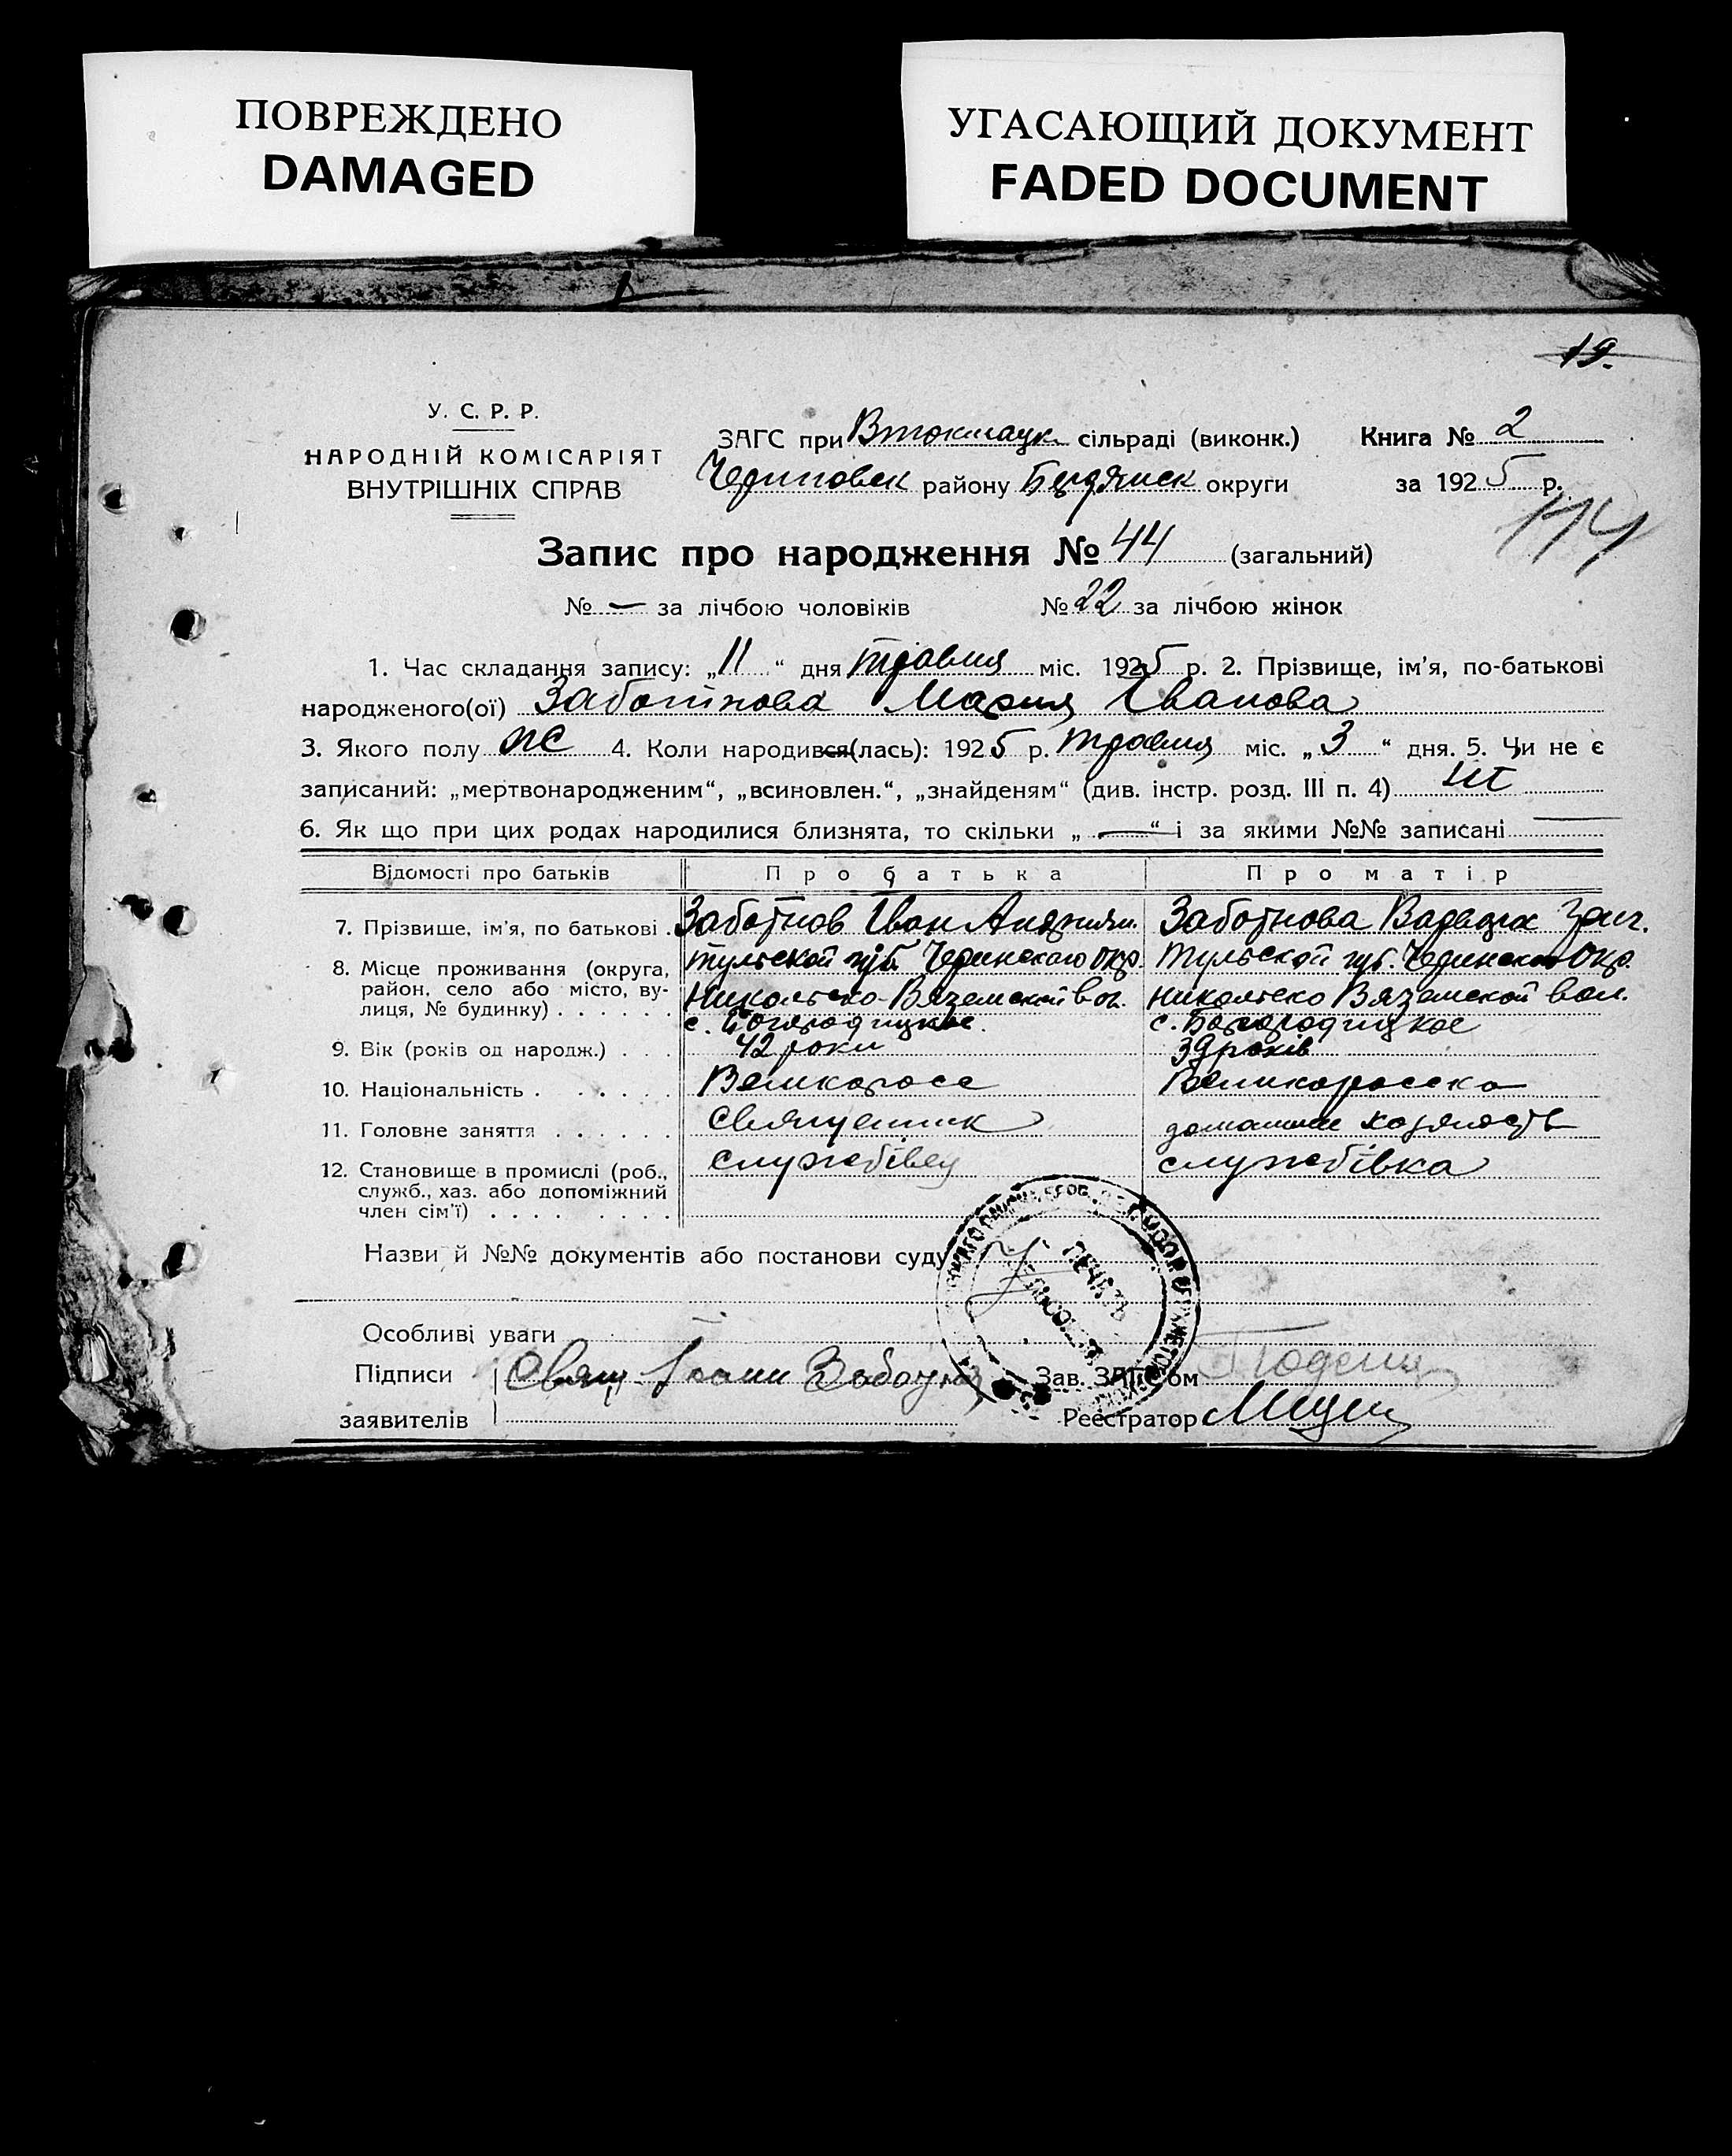 ПОВРЕЖДЕНО
DAMAGED
УГАСАЮЩИЙ ДОКУМЕНТ
FADED DOCUMENT
19.
У. С. Р. Р.
НАРОДНІЙ КОМІСАРІЯТ
ВНУТРІШНІХ СПРАВ
ЗАГС при Втокмацк сільраді (виконк.) Книга № 2
району Бердянск округи за 1925 р.
114
Запис про народження № 44 (загальний)
№ — за лічбою чоловіків № 22 за лічбою жінок
1. Час складання запису: „11" дня травня міс. 1925 р. 2. Прізвище, ім'я, по-батькові
народженого(ої) Заботінова Мария Іванова
3. Якого полу ж 4. Коли народився(лась): 1925 р. травня міс. „3" дня. 5. Чи не є
записаний: „мертвонародженим", „всиновлен.", „знайденям" (див. інстр. розд. III п. 4) ні
6. Як що при цих родах народилися близнята, то скільки „—" і за якими №№ записані —
Відомості про батьків Про батька Про матір
7. Прізвище, ім'я, по батькові . Заботнов Іван Заботнова Варвара Григ.
8. Місце проживання (округа, район, село або місто, вулиця, № будинку) . . . . . .
Тульской губ. Чернского окр. Тульской губ. Чернского окр.
Никольско-Вяземской вол. Никольско Вяземской вол.
с. Богородицкое. с. Богородицкое
9. Вік (років од народж.) . . . 42 роки 39 років
10. Національність . . . . . . Великоросс Великоросска
11. Головне заняття . . . . . . Священник домашне хозяйств
12. Становище в промислі (роб., служб., хаз. або допоміжний член сім'ї) . . . . . . . . службівец службівка
Назви й №№ документів або постанови суду
Особливі уваги
Підписи Свящ. Іоанн Заботнов Зав. ЗАГС'ом
заявителів Реєстратор
ПЕЧАТЬ